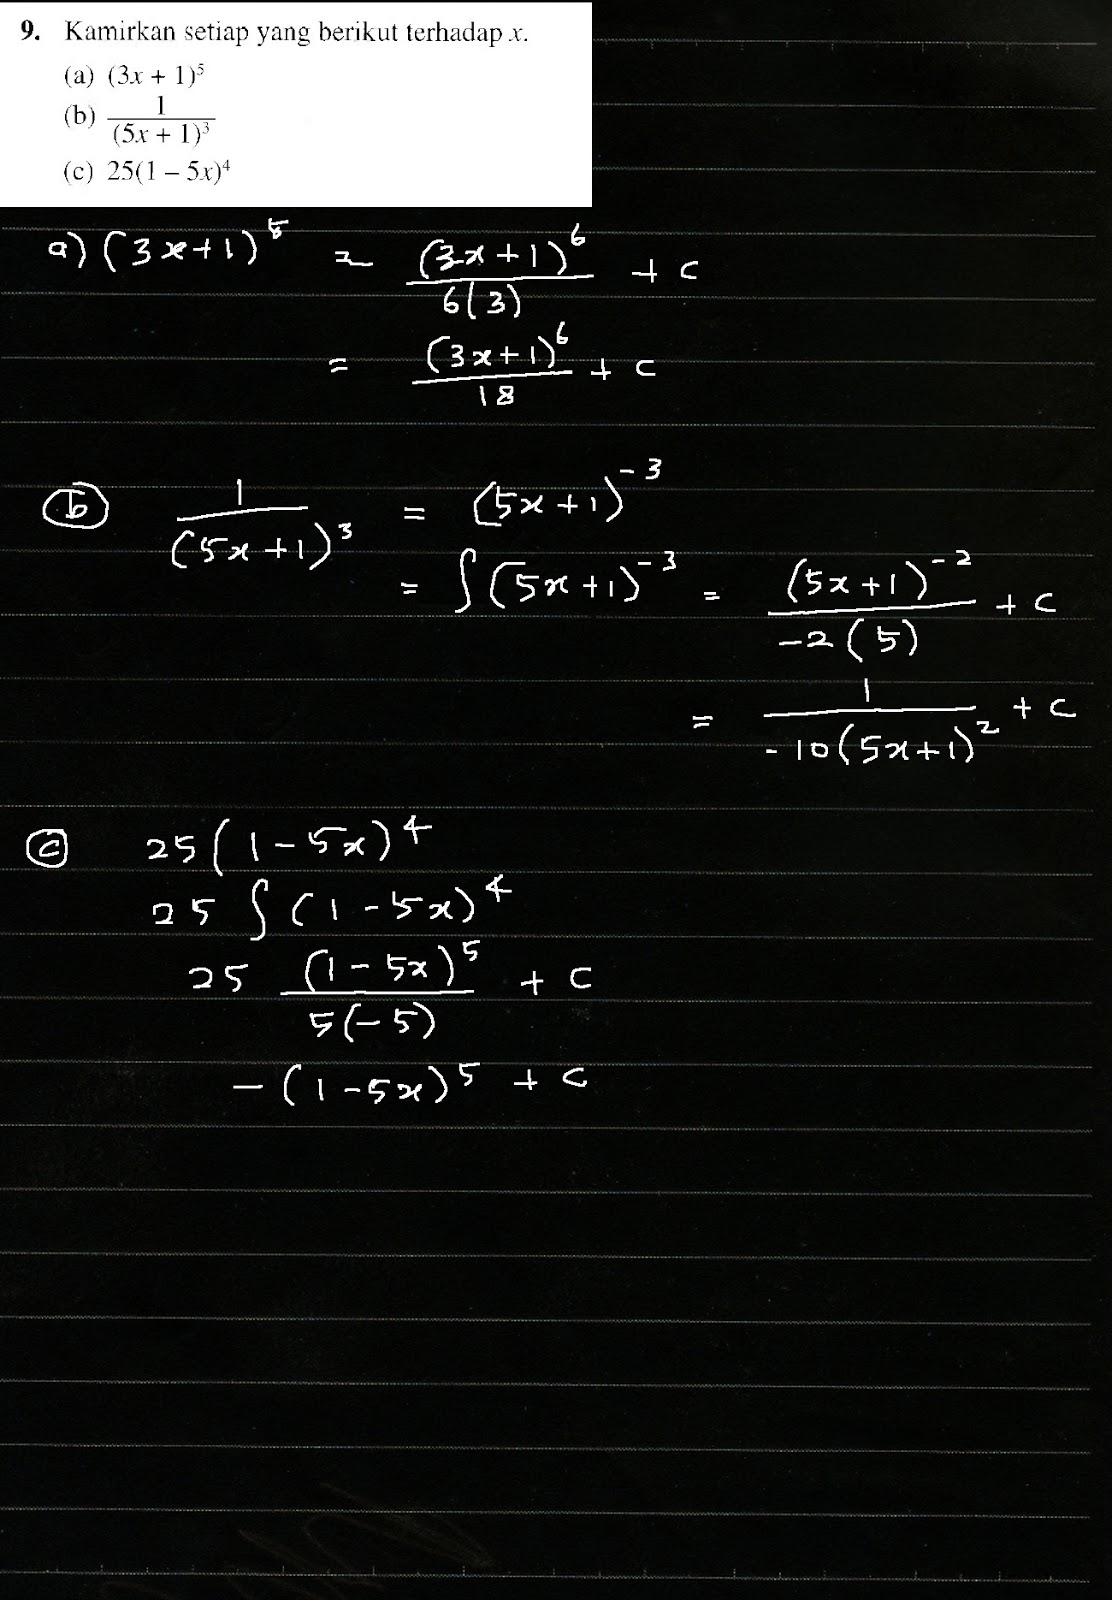 9. Kamirkan setiap yang berikut terhadap x.
(a) (3x + 1)⁵
(b) 1/(5x + 1)³
(c) 25(1 – 5x)⁴
a) (3x+1)⁵ = (3x+1)⁶/6(3) + c
= (3x+1)⁶/18 + c
(b) 1/(5x+1)³ = (5x+1)⁻³
= ∫(5x+1)⁻³ = (5x+1)⁻²/-2(5) + c
= 1/-10(5x+1)² + c
(c) 25(1-5x)⁴
25 ∫(1-5x)⁴
25 (1-5x)⁵/5(-5) + c
-(1-5x)⁵ + c